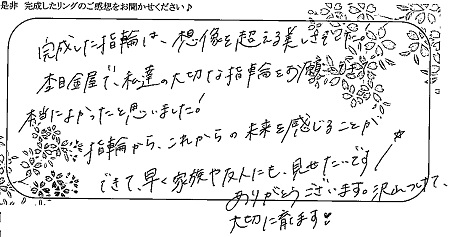 是非 完成したリングのご感想をお聞かせください♪
完成した指輪は、想像を超える美しさでした。
杢目金屋で、私達の大切な指輪をお願いできて
本当によかったと思いました!
指輪から、これからの未来を感じることが
できて、早く家族や友人にも、見せたいです!
ありがとうございます。沢山つけて、
大切に育てます♥